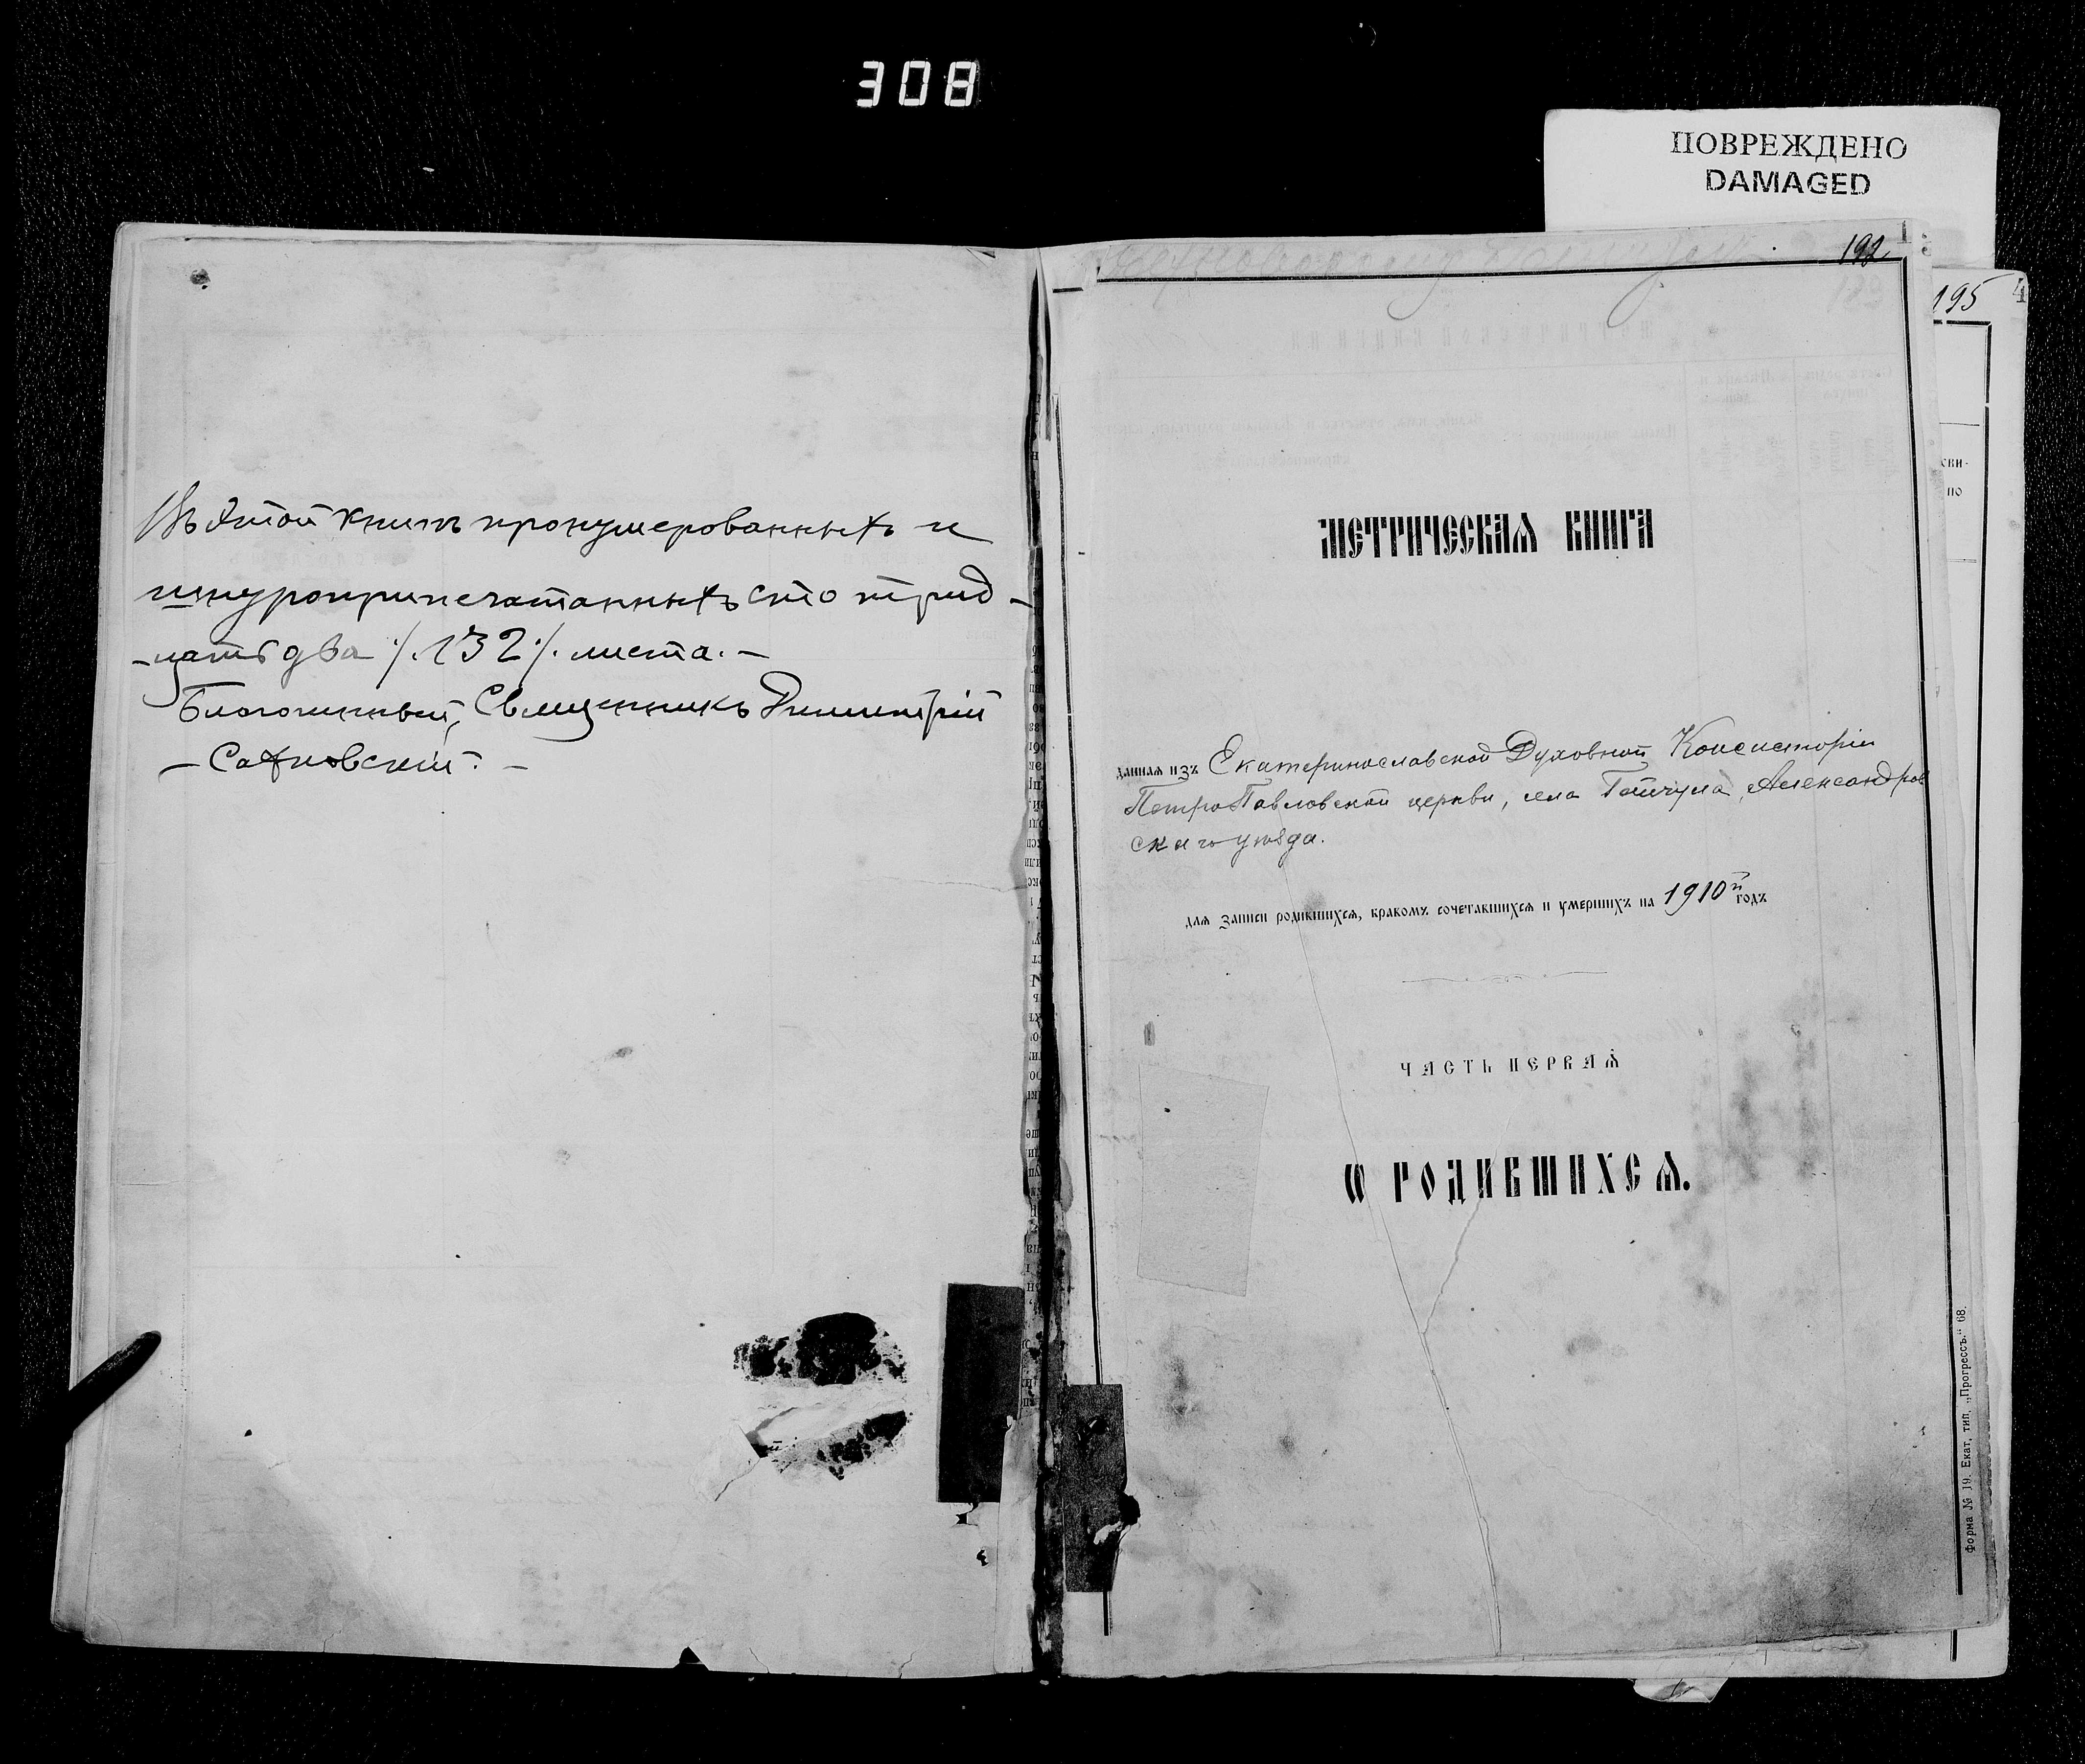 308
ПОВРЕЖДЕНО
DAMAGED
Въ этой книгѣ пронумерованныхъ и
шнуроприпечатанныхъ сто трид-
-цать два ./.132./. листа.-
Благочинный, Священникъ Димитрій
192
195
4
сви-
по
МЕТРИЧЕСКАѦ КНИГА
даннаѧ изъ Екатеринославской Духовной Консисторіи
Петро-Павловской церкви, села Гайчула, Александров
скаго уѣзда.
длѧ записи родившихсѧ, бракомъ сочетавшихсѧ и умершихъ на 1910й годъ
ЧАСТЬ ПЕРВАѦ
Ѡ РОДИВШИХСѦ.
Форма № 19. Екат, тип. „Прогрессъ." 68.